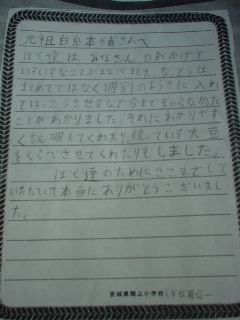 元祖自糸本舗さんへ
ぼく達は、みなさんのおかげで
いろいろなことがまなべました。なっとうは
まとめてではなく個別のようきに入れ
ては、こうさせるなど今まで知らなかった
ことがわかりました。それにわかりやす
く説明してくれたり、使っている大豆
をくらべさせてくれたりもしました。
ぼく達のためにここまでして
いただいて本当にありがとうございまし
た。
茨城県 上小学校